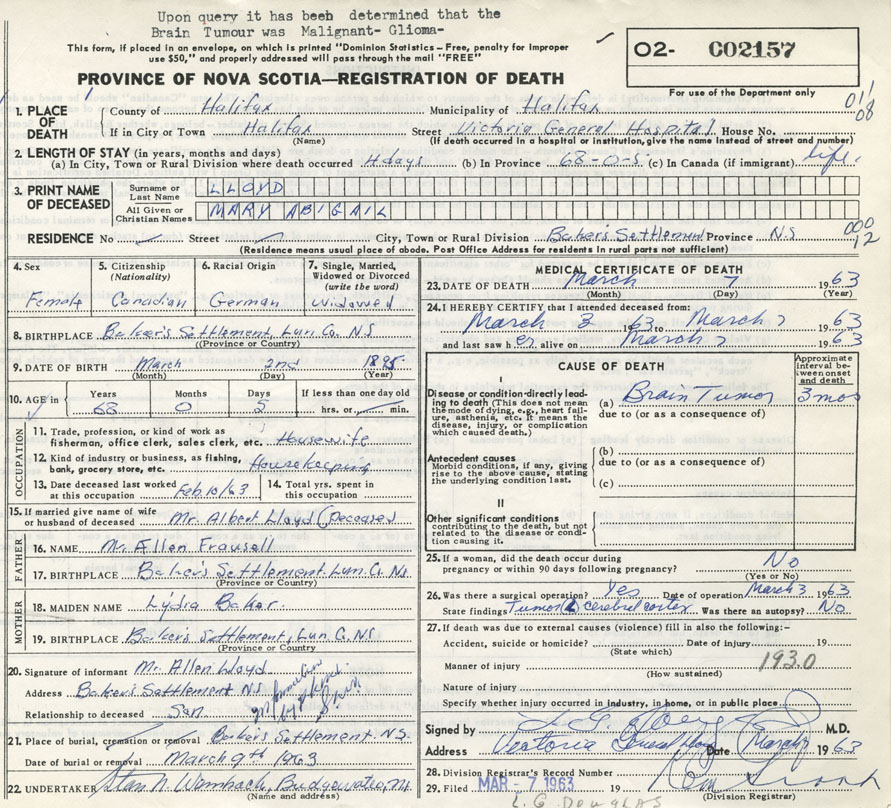 Upon query it has beeh determined that the
Brain Tumour was Malignant- Glioma-
This form, if placed in an envelope, on which is printed "Dominion Statistics – Free, penalty for improper
use $50," and properly addressed will pass through the mail "FREE"
O2- C02157
For use of the Department only
PROVINCE OF NOVA SCOTIA—REGISTRATION OF DEATH
011/08
1. PLACE OF DEATH
County of Halifax Municipality of Halifax
If in City or Town Halifax Street Victoria General Hospital House No.
(Name) (If death occurred in a hospital or institution, give the name instead of street and number)
2. LENGTH OF STAY (in years, months and days)
(a) In City, Town or Rural Division where death occurred 4 days (b) In Province 68-0-5 (c) In Canada (if immigrant) life.
3. PRINT NAME OF DECEASED
Surname or Last Name LLOYD
All Given or Christian Names MARY ABIGAIL
000/12
RESIDENCE No Street City, Town or Rural Division Baker's Settlement Province N S
(Residence means usual place of abode. Post Office Address for residents in rural parts not sufficient)
4. Sex Female
5. Citizenship (Nationality) Canadian
6. Racial Origin German
7. Single, Married, Widowed or Divorced (write the word) Widowed
8. BIRTHPLACE Baker's Settlement, Lun. Co. N S
(Province or Country)
9. DATE OF BIRTH March 2nd 1895
(Month) (Day) (Year)
10. AGE in Years Months Days If less than one day old
68 0 5 hrs. or min.
OCCUPATION
11. Trade, profession, or kind of work as fisherman, office clerk, sales clerk, etc. Housewife
12. Kind of industry or business, as fishing, bank, grocery store, etc. Housekeeping
13. Date deceased last worked at this occupation Feb 10/63
14. Total yrs. spent in this occupation
15. If married give name of wife or husband of deceased Mr. Albert Lloyd (Deceased
FATHER
16. NAME Mr. Allen
17. BIRTHPLACE Baker's Settlement, Lun. Co. N S
(Province or Country)
MOTHER
18. MAIDEN NAME Lydia Baker.
19. BIRTHPLACE Baker's Settlement, Lun. Co. NS
(Province or Country)
20. Signature of informant Mr. Allen Lloyd
Address Baker's Settlement N S
Relationship to deceased Son
information by phone.
21. Place of burial, cremation or removal Baker's Settlement N.S.
Date of burial or removal March 9th 1963
22. UNDERTAKER
(Name and address)
MEDICAL CERTIFICATE OF DEATH
23. DATE OF DEATH March 7 1963
(Month) (Day) (Year)
24. I HEREBY CERTIFY that I attended deceased from:
March 3 1963 to March 7 1963
and last saw h er alive on March 7 1963
CAUSE OF DEATH
Approximate interval between onset and death
I
Disease or condition-directly leading to death (This does not mean the mode of dying, e.g., heart failure, asthenia, etc. It means the disease, injury, or complication which caused death.)
(a) Brain Tumor 3 mos
due to (or as a consequence of)
Antecedent causes
Morbid conditions, if any, giving rise to the above cause, stating the underlying condition last.
(b)
due to (or as a consequence of)
(c)
II
Other significant conditions
contributing to the death, but not related to the disease or condition causing it.
25. If a woman, did the death occur during pregnancy or within 90 days following pregnancy? No
(Yes or No)
26. Was there a surgical operation? Yes Date of operation March 3 1963
State findings Tumor (L) cerebral cortex Was there an autopsy? No
27. If death was due to external causes (violence) fill in also the following:-
Accident, suicide or homicide? Date of injury 19
(State which)
Manner of injury 193.0
(How sustained)
Nature of injury
Specify whether injury occurred in industry, in home, or in public place
Signed by M.D.
Address Victoria General Hosp Date March 7 1963
28. Division Registrar's Record Number
29. Filed MAR - 7 1963 19
(Division Registrar)
L. G. DOUGLAS